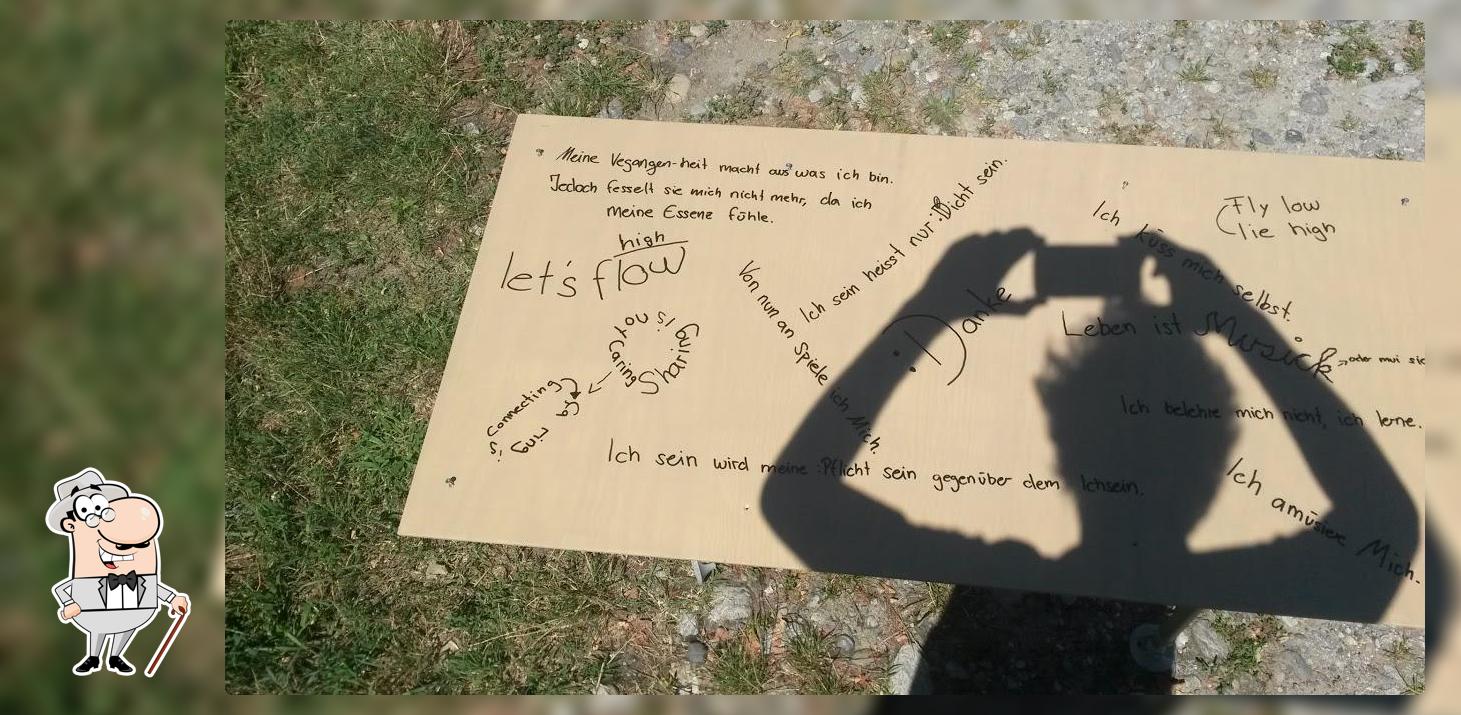 Meine Vegangen-heit macht aus was ich bin.
Jedoch fesselt sie mich nicht mehr, da ich
meine Essenz fühle.
high
let's flow
Sharing is not Caring
Caring is Connecting
Von nun an Spiele ich Mich.
Ich sein heisst nur: Dicht sein.
:D anke
Ich küss mich selbst.
Fly low
lie high
Leben ist Musick
→oder mui sic
Ich belehre mich nicht, ich lerne.
Ich sein wird meine Pflicht sein gegenüber dem Ichsein.
Ich amüsiere Mich.